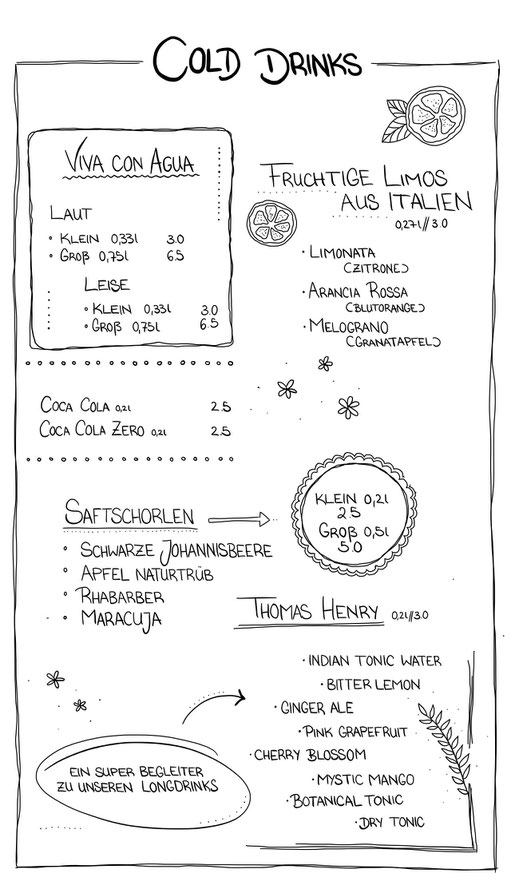 COLD DRINKS
VIVA CON AGUA
LAUT
• KLEIN 0,33l 3.0
• GROß 0,75l 6.5
LEISE
• KLEIN 0,33l 3.0
• GROß 0,75l 6.5
FRUCHTIGE LIMOS
AUS ITALIEN
0,27l // 3.0
• LIMONATA
(ZITRONE)
• ARANCIA ROSSA
(BLUTORANGE)
• MELOGRANO
(GRANATAPFEL)
COCA COLA 0,2l 2.5
COCA COLA ZERO 0,2l 2.5
SAFTSCHORLEN
• SCHWARZE JOHANNISBEERE
• APFEL NATURTRÜB
• RHABARBER
• MARACUJA
KLEIN 0,2l
2.5
GROß 0,5l
5.0
THOMAS HENRY 0,2l//3.0
• INDIAN TONIC WATER
• BITTER LEMON
• GINGER ALE
• PINK GRAPEFRUIT
• CHERRY BLOSSOM
• MYSTIC MANGO
• BOTANICAL TONIC
• DRY TONIC
EIN SUPER BEGLEITER
ZU UNSEREN LONGDRINKS